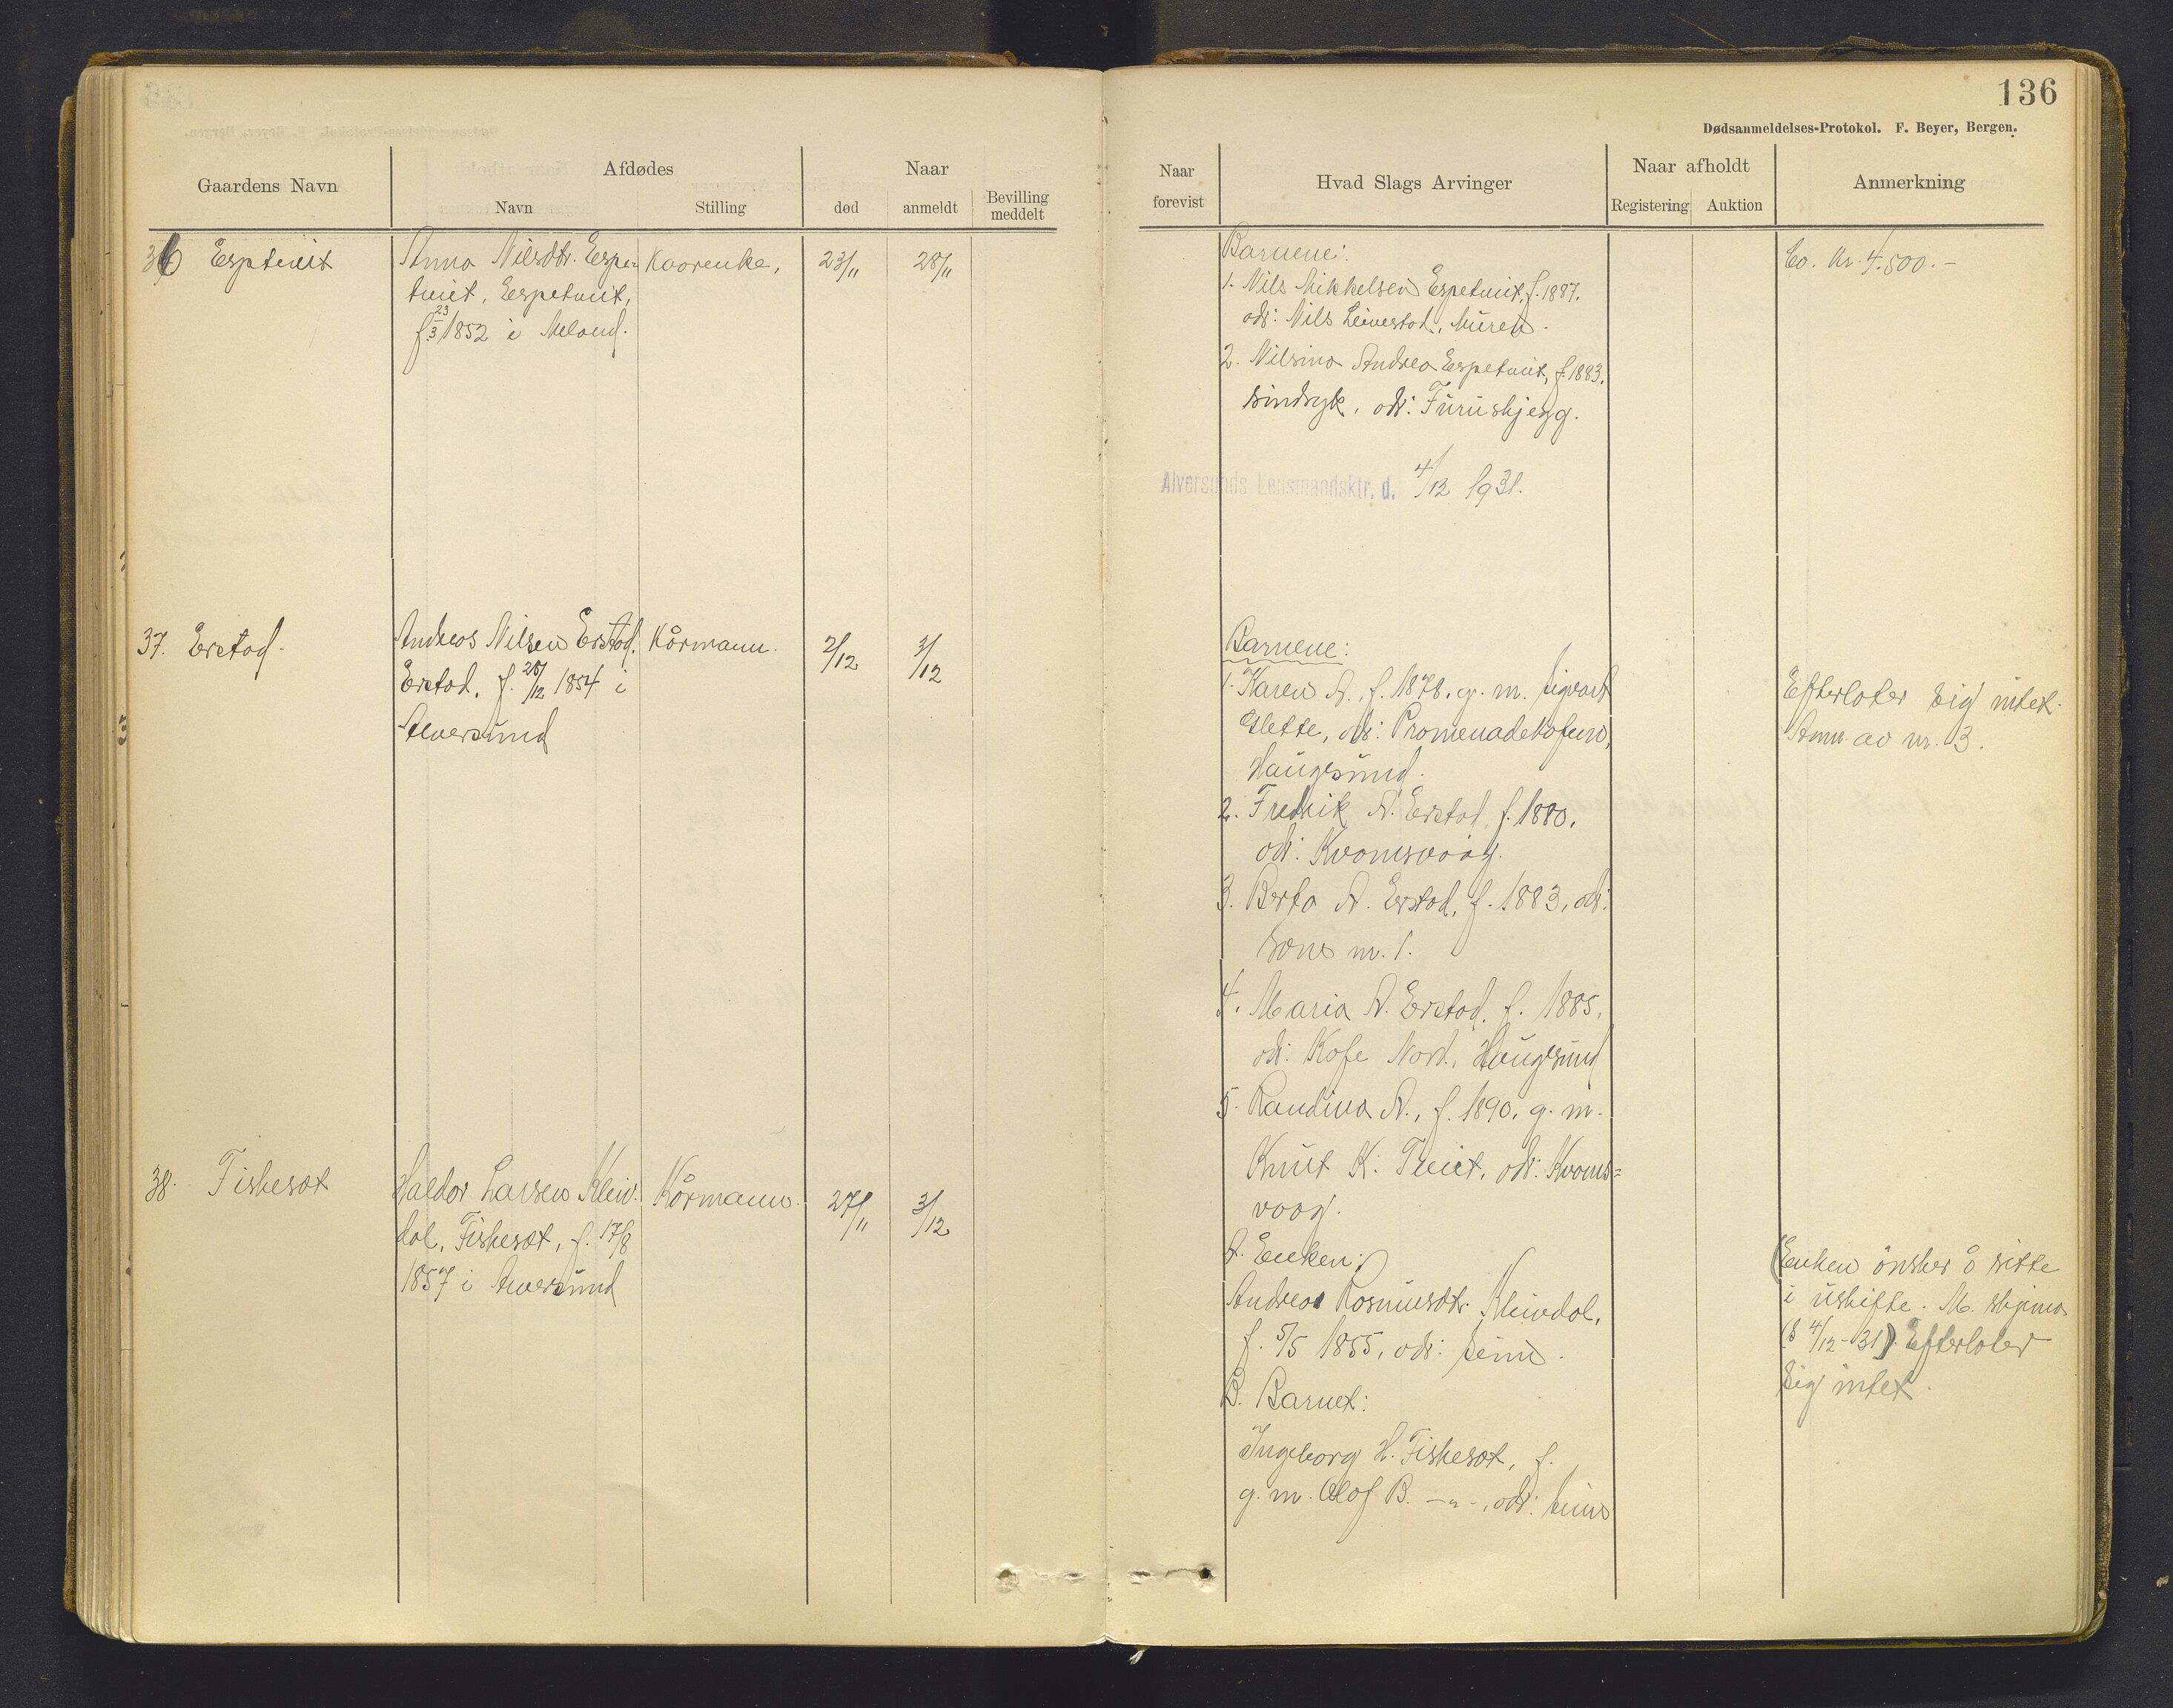 136
Dødsanmeldelses-Protokol. F. Beyer, Bergen.
Gaardens Navn
Afdødes
Navn
Stilling
Naar
død
anmeldt
Bevilling
meddelt
Naar
forevist
Hvad Slags Arvinger
Naar afholdt
Registering
Auktion
Anmerkning
36 Esptveit
Anna Nilsdtr. Espe-
tveit, Espetveit,
f. 23/3 1852 i Meland.
Kaarenke,
23/11
28/11
Barnene:
1. Nils Mikkelsen Espetveit, f. 1887.
adr: Nils Leivestad, Muren.
2. Nilsina Andrea Espetveit, f. 1883.
sindsyk, adr: Furuskjegg.
Alversunds Lensmandsktr. d. 4/12 1931.
Co. Kr. 4.500.-
37. Erstad.
Andreas Nilsen Erstad.
Erstad, f. 28/12 1854 i
Alversund
Kårmann.
2/12
3/12
Barnene:
1. Karen A., f. 1878. g. m. Sigvart
Slette, adr: Promenadekafeen,
Haugesund.
2. Fredrik A. Erstad, f. 1880.
adr: Kvamsvaag.
3. Berta A. Erstad, f. 1883, adr:
som nr. 1.
4. Maria A. Erstad, f. 1885.
adr: Kafe Nord, Haugesund
5. Randina A., f. 1890. g. m.
Knut K. Tveit, adr: Kvams=
vaag.
Efterlater sig intet.
Anm. av nr. 3.
38. Fiskesæt
Haldor Larsen Kleiv-
dal, Fiskesæt, f. 17/8
1857 i Alversund
Kårmann.
27/11
3/12
A. Enken:
Andrea Rasmusdtr. Kleivdal,
f. 5/5 1855, adr: Seim.
B. Barnet:
Ingeborg H. Fiskesæt, f.
g. m. Olof B. -"-, adr: Seim
(Enken önsker å sitte
i uskifte. M. skjema
(8 4/12-31). Efterlater
sig intet.